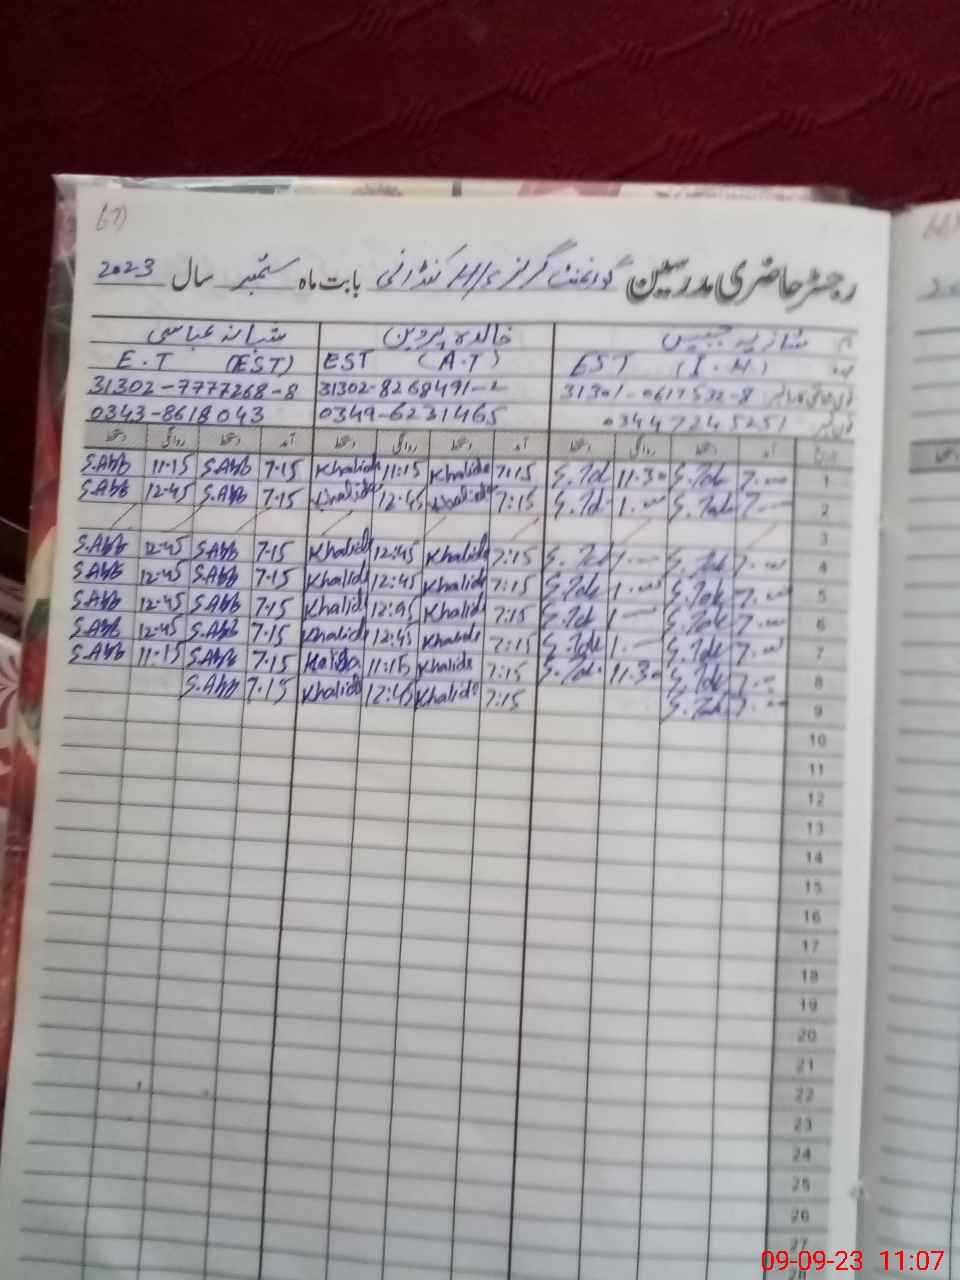 (67)
رجسٹر حاضری مدرسین گورنمنٹ گرلز H/S کنڈانی بابت ماہ ستمبر سال 2023
نام شازیہ حبیب خالدہ پروین شبانہ عباسی
عہدہ EST (I.H) EST (A.T) E.T (EST)
31301-0617532-8 31302-8268491-2 31302-7777268-8
فون نمبر 03447245251 0349-6231465 0343-8618043
تاریخ آمد دستخط روانگی دستخط آمد دستخط روانگی دستخط آمد دستخط روانگی دستخط
1 7.00 S.Tak 11.30 S.Tak 7:15 Khalida 11:15 Khalida 7.15 S.Abb 11.15 S.Abb
2 7.00 S.Tak 1.00 S.Tak 7:15 Khalida 12.45 Khalida 7.15 S.Abb 12.45 S.Abb
3
4 7.00 S.Tak 1.00 S.Tak 7:15 Khalida 12:45 Khalida 7.15 S.Abb 12.45 S.Abb
5 7.00 S.Tak 1.00 S.Tak 7:15 Khalida 12:45 Khalida 7.15 S.Abb 12.45 S.Abb
6 7.00 S.Tak 1.00 S.Tak 7:15 Khalida 12:45 Khalida 7.15 S.Abb 12.45 S.Abb
7 7.00 S.Tak 1.00 S.Tak 7:15 Khalida 12:45 Khalida 7.15 S.Abb 12.45 S.Abb
8 7.00 S.Tak 11.30 S.Tak 7:15 Khalida 11:15 Khalida 7.15 S.Abb 11.15 S.Abb
9 7.00 S.Tak 7:15 Khalida 12:45 Khalida 7.15 S.Abb
10
11
12
13
14
15
16
17
18
19
20
21
22
23
24
25
26
27
28
09-09-23 11:07